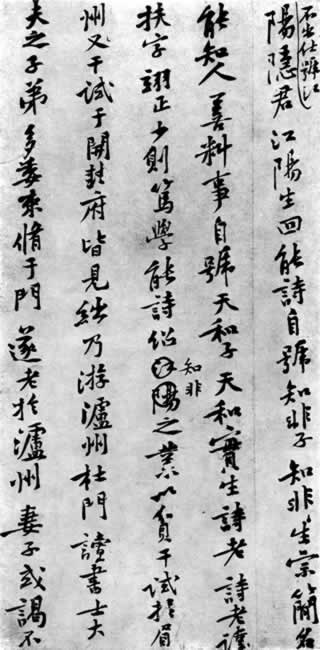 不出仕號江
陽隱君江陽生回能詩自號知非子知非生宗簡名
能知人善料事自號天和子天和實生詩老詩老諱
扶字翊正少則篤學能詩紹知非之業以貢干試於眉
州又干試于開封府皆見絀乃游瀘州杜門讀書士大
夫之子弟多委束脩于門遂老於瀘州妻子或謁不